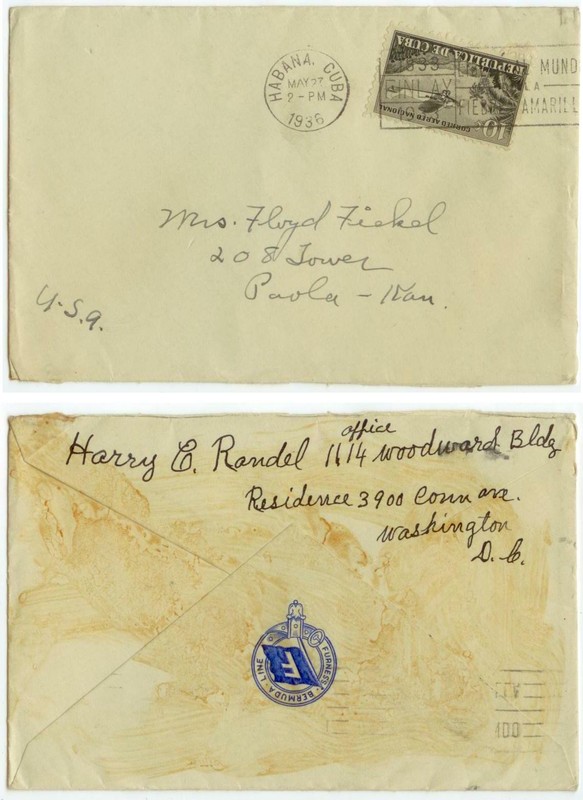 HABANA, CUBA
MAY 27
2-PM
1936
REPUBLICA DE CUBA
CORREO AEREO NACIONAL
10¢
FINLAY
MUND
AMARILL
Mrs. Floyd Fickel
208 Tower
Paola - Kan.
U.S.A.
office
Harry E. Randel 1114 Woodward Bldg
Residence 3900 Conn ave.
Washington
D.C.
FURNESS · BERMUDA · LINE
F